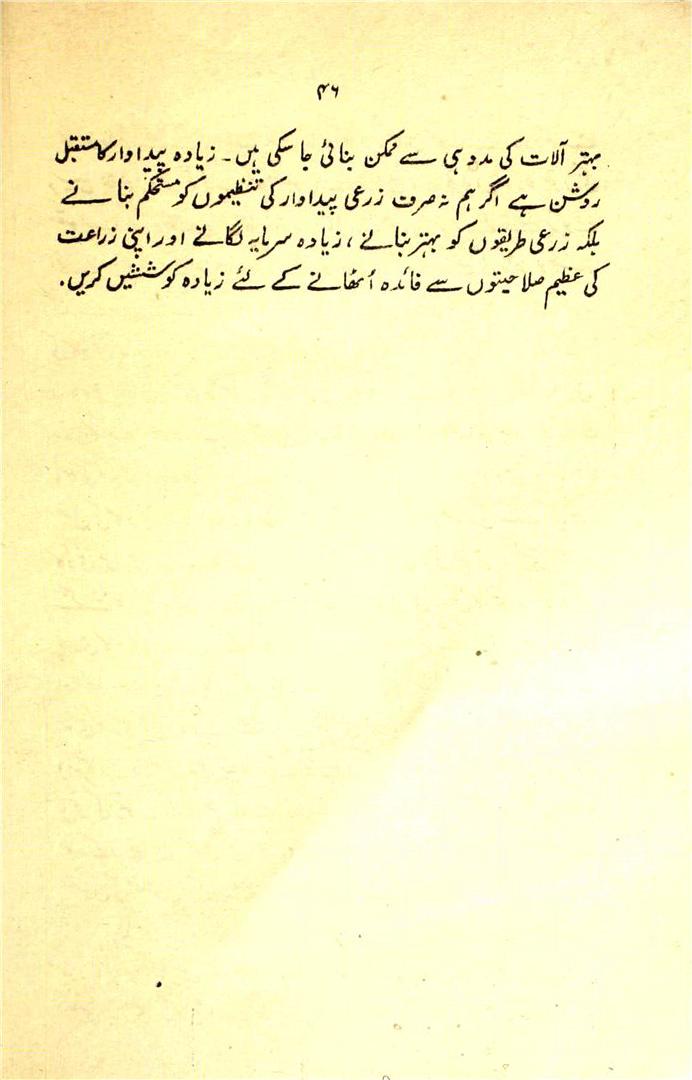 ۴۶
بہتر آلات کی مدد ہی سے ممکن بنائی جا سکی ہیں۔ زیادہ پیداوار کا مستقبل
روشن ہے اگر ہم نہ صرف زرعی پیداوار کی تنظیموں کو مستحکم بنانے
بلکہ زرعی طریقوں کو بہتر بنانے ، زیادہ سرمایہ لگانے اور اپنی زراعت
کی عظیم صلاحیتوں سے فائدہ اُٹھانے کے لئے زیادہ کوششیں کریں۔